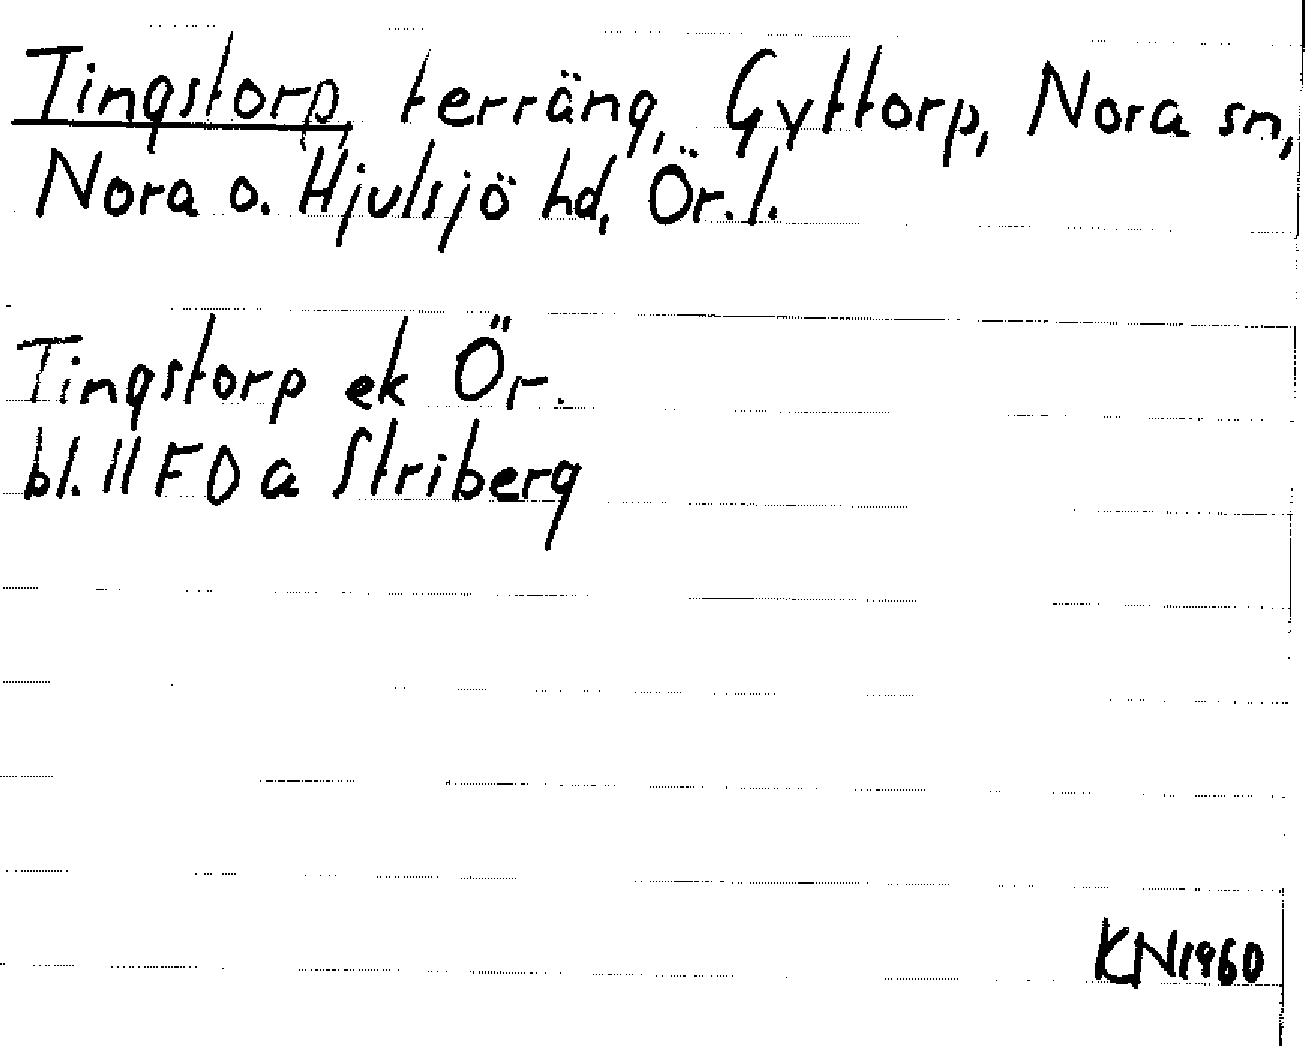 Tingstorp, terräng, Gyttorp, Nora sn,
Nora o. Hjulsjö hd, Ör. l.
Tingstorp ek Ör.
bl. 11 F 0 a Striberg
KN1960